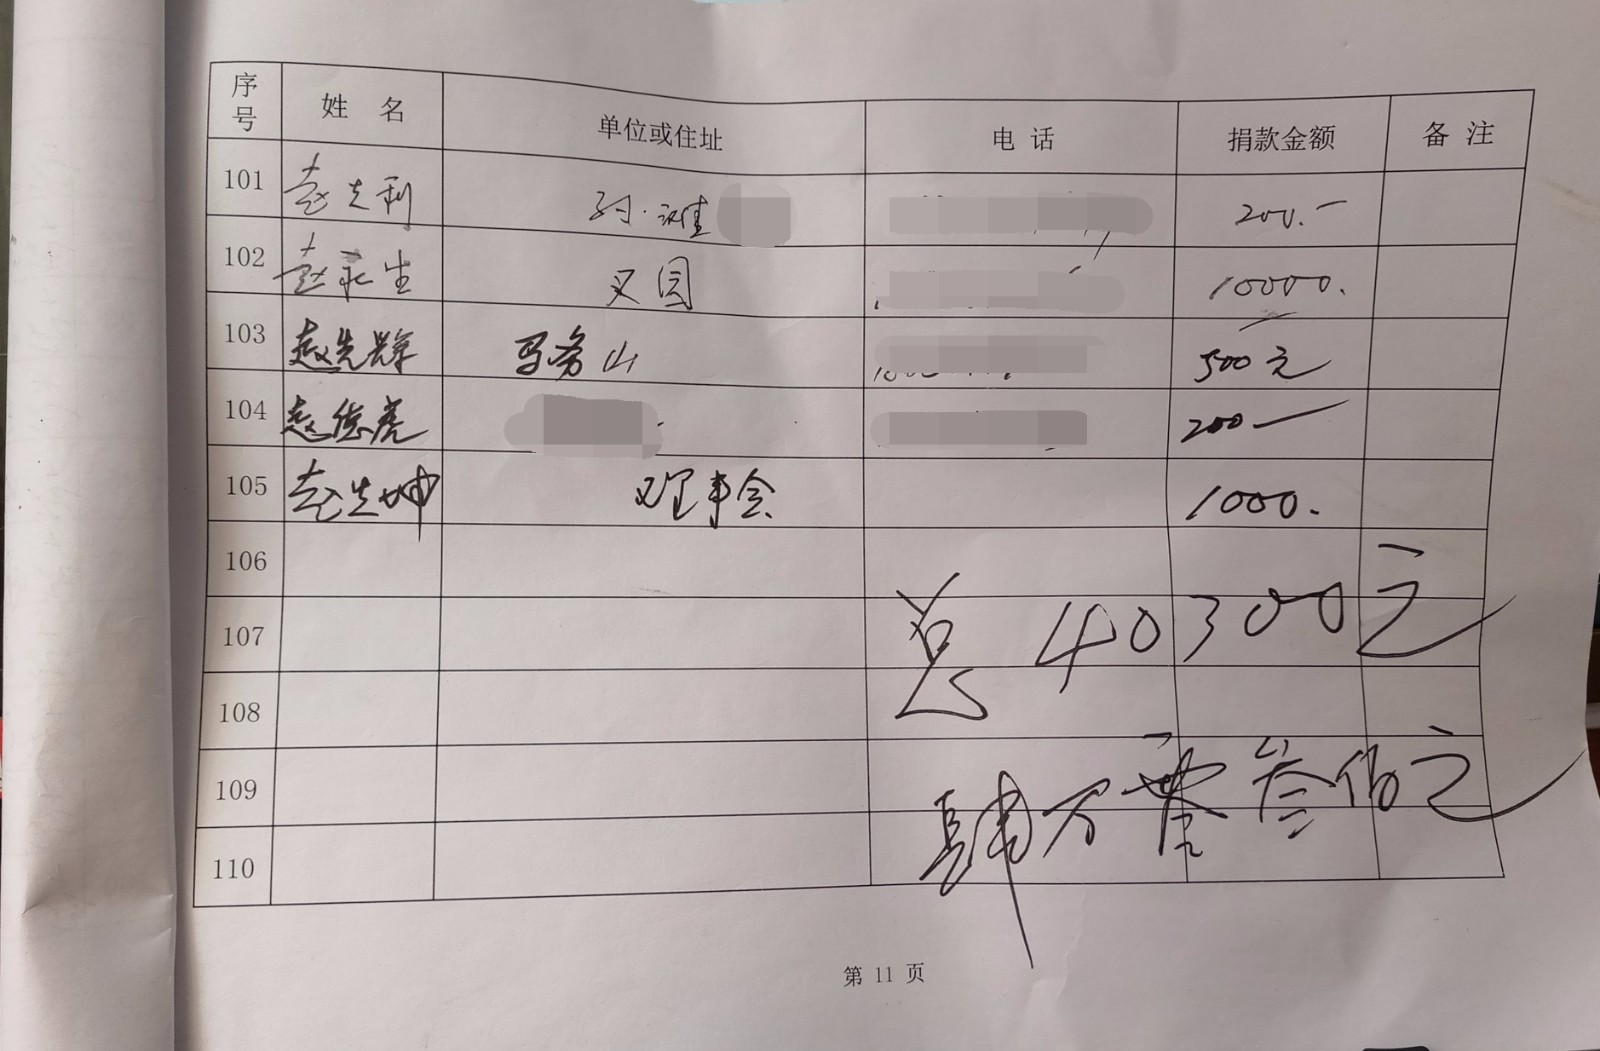 序号 姓 名 单位或住址 电 话 捐款金额 备 注
101 赵先利 200.-
102 赵永生 又园 10000.
103 赵先辉 马务山 500元
104 赵德虎 200-
105 赵先坤 理事会 1000.
106
总 40300元
107
108
肆万零叁佰元
109
110
第 11 页